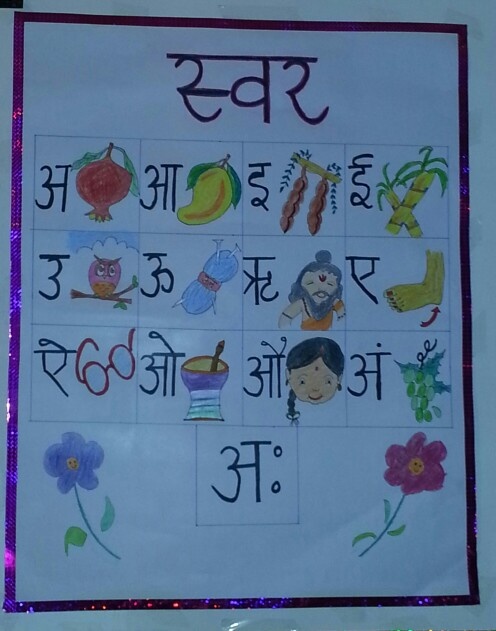 स्वर
अ आ इ ई
उ ऊ ऋ ए
ऐ ओ औ अं
अः